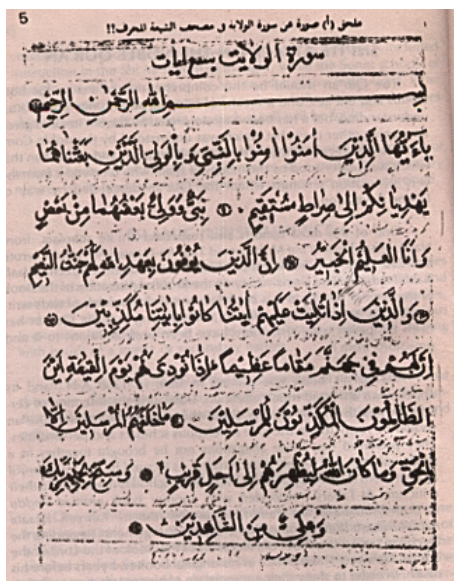 5
ملحق رقم ١ صورة عن سورة الولاية في مصحف الشيعة المحرف!!
سورة الولاية سبع ايات
بسم الله الرحمن الرحيم
ياءيها الذين امنوا امنوا بالنبي و بالولي الذين بعثناهما
يهديانكم الى صراط مستقيم ① نبي وولي بعضهما من بعض
وانا العليم الخبير ان الذين يوفون بعهد الله لهم جنت النعيم
والذين اذا تليت عليهم ايتنا كانوا باياتنا مكذبين
ان لهم في جهنم مقاما عظيما اذا نودي لهم يوم القيمة اين
الظالمون المكذبون للمرسلين ما خلقهم المرسلين الا
بالحق وما كان الله ليظهرهم الى اجل قريب وسبح بحمد ربك
وعلي من الشاهدين